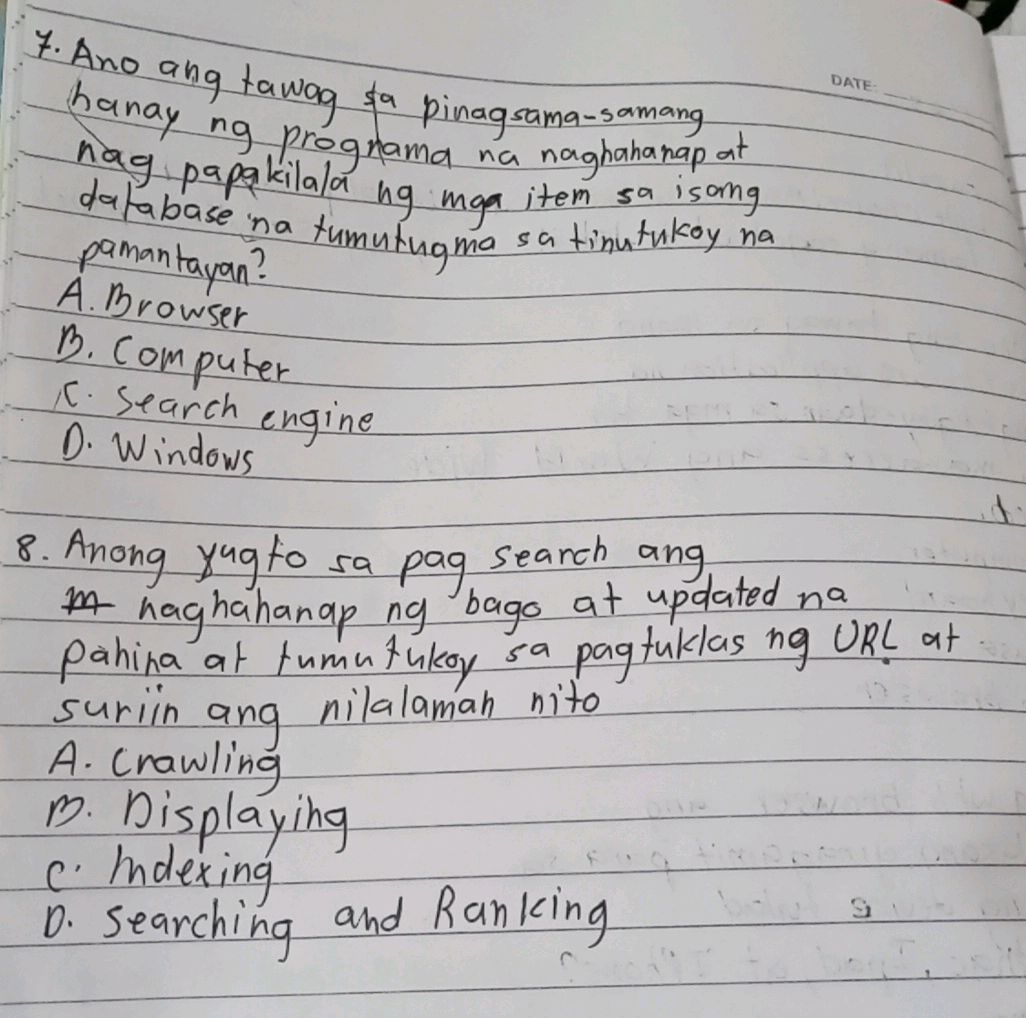 DATE:
7. Ano ang tawag sa pinagsama-samang
hanay ng programa na naghahanap at
nag papakilala ng mga item sa isang
database na tumutugma sa tinutukoy na
pamantayan?
A. Browser
B. Computer
C. Search engine
D. Windows
8. Anong yugto sa pag search ang
naghahanap ng bago at updated na
pahina at tumutukoy sa pagtuklas ng URL at
suriin ang nilalaman nito
A. Crawling
B. Displaying
C. Indexing
D. Searching and Ranking